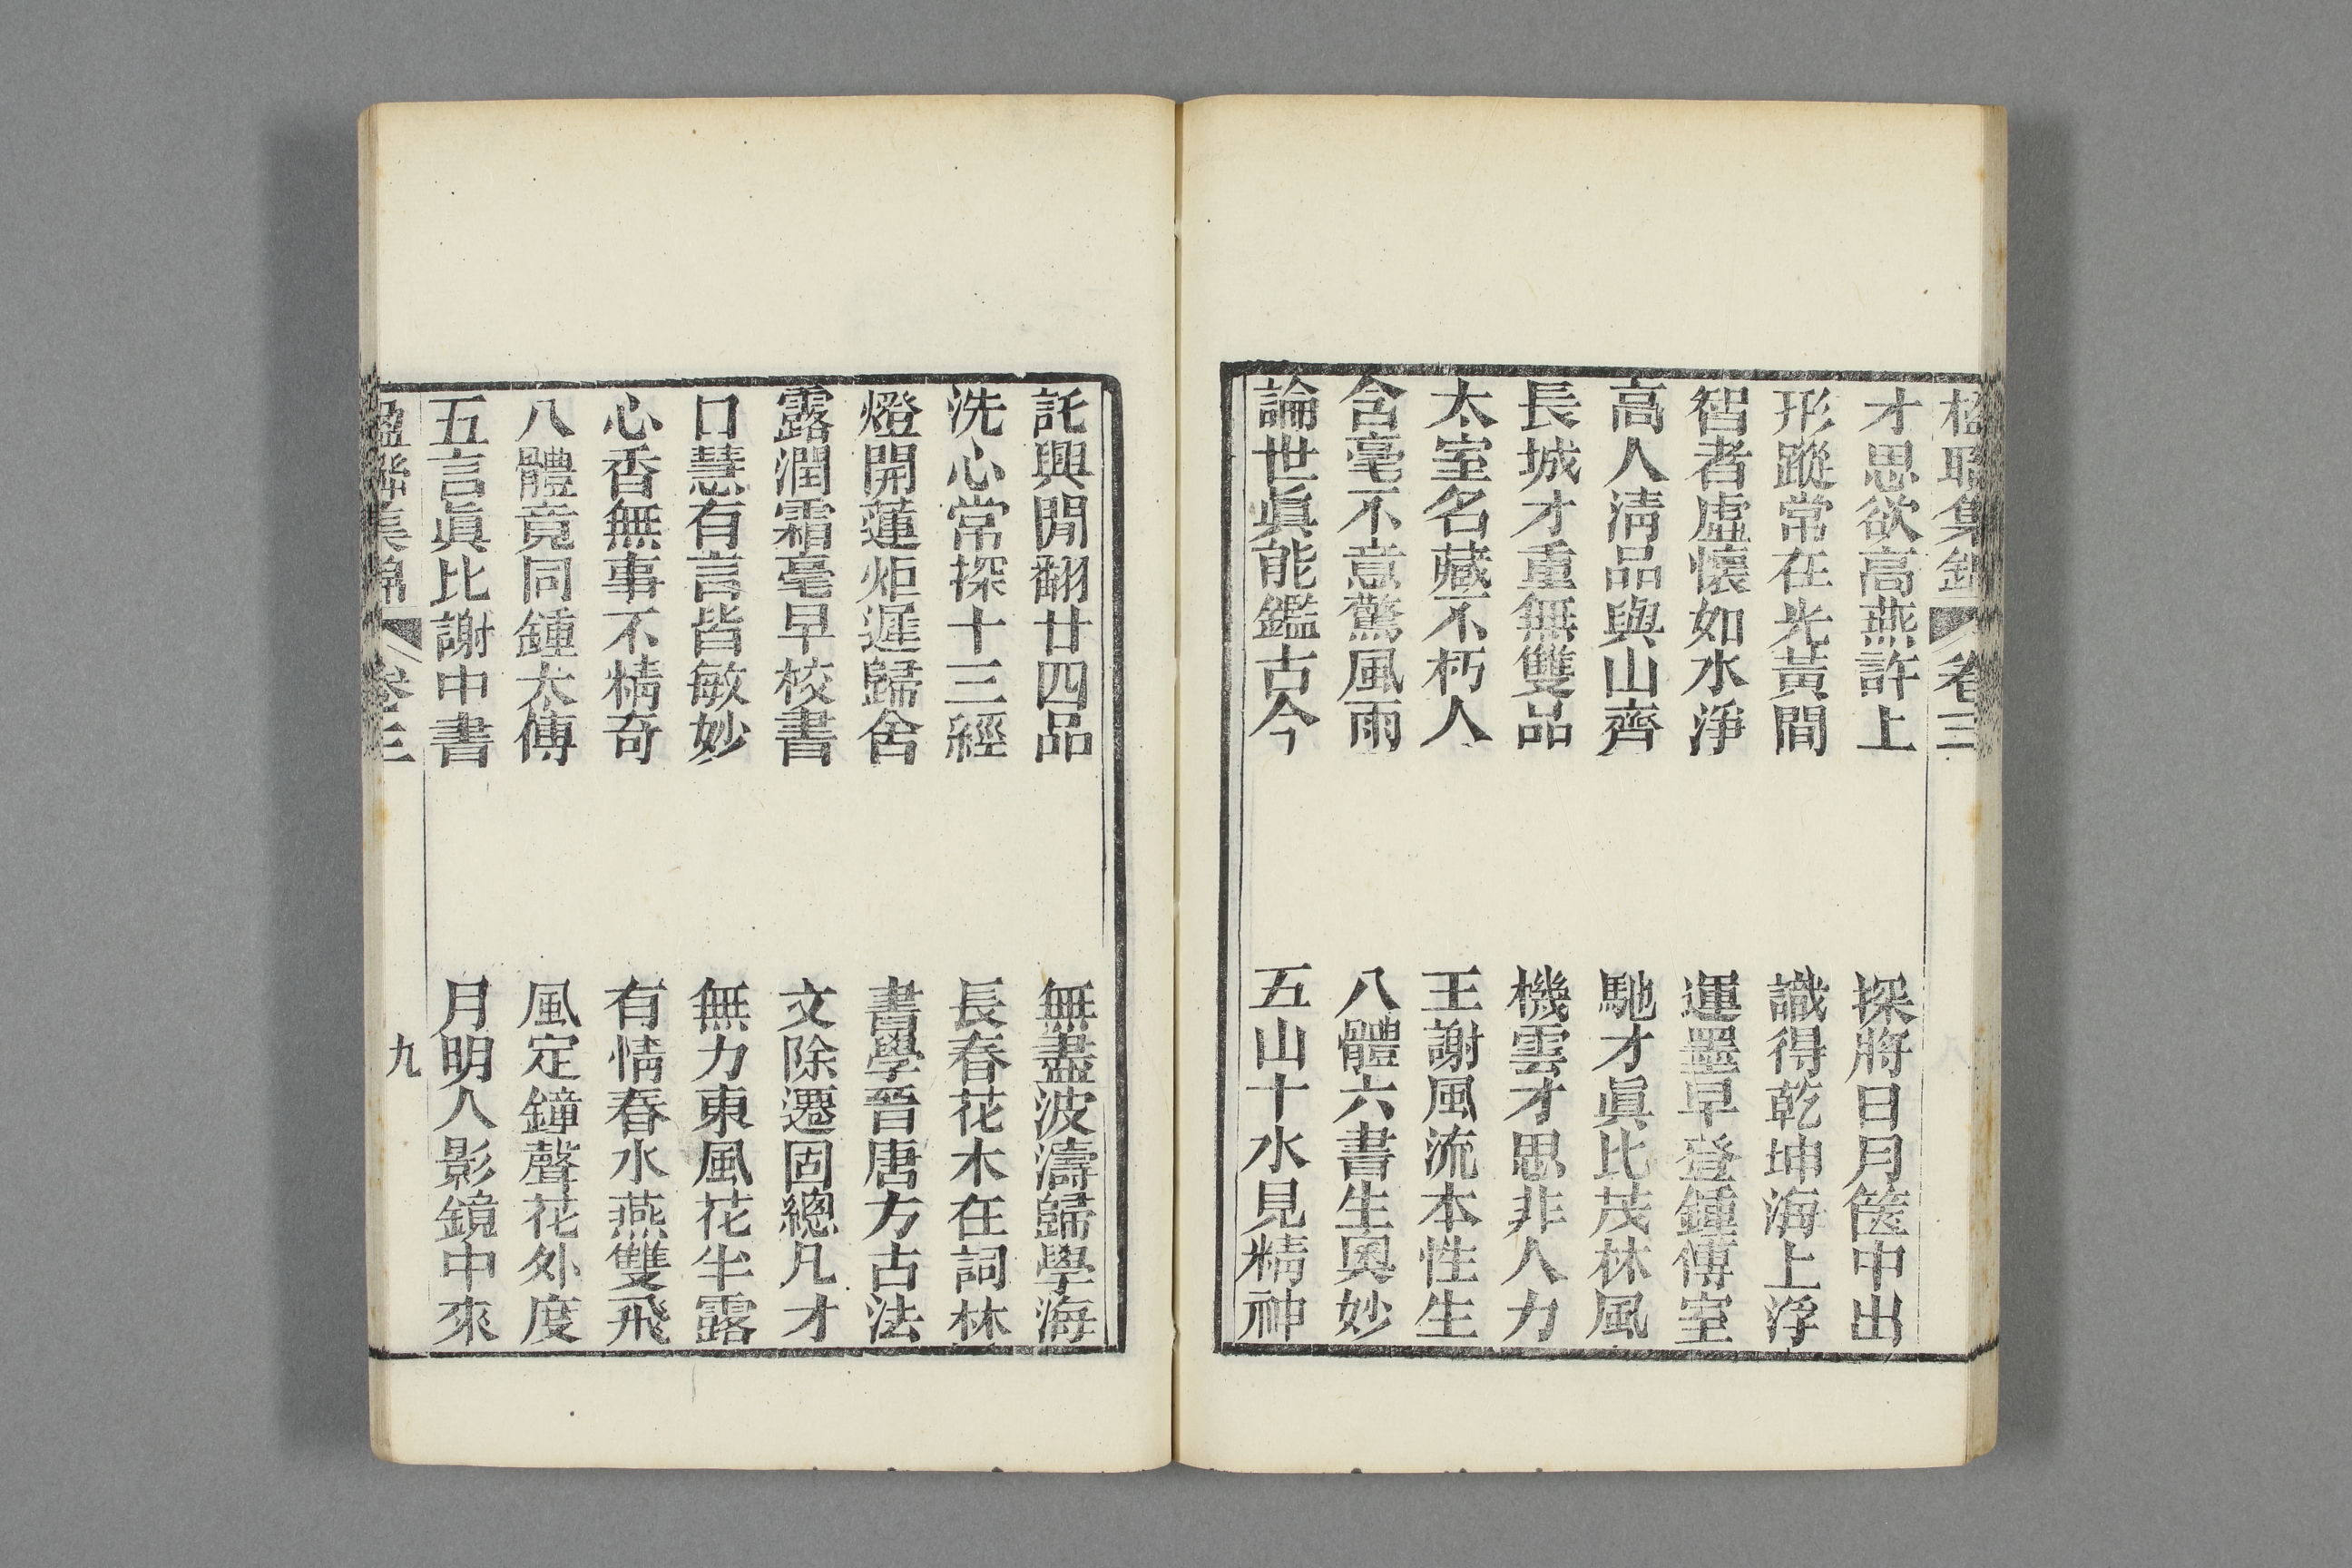 楹聯集錦 卷三
才思欲高燕許上 探將日月篋中出
形蹤常在光黃間 識得乾坤海上浮
智者虛懷如水淨 運墨早登鍾傅室
高人淸品與山齊 馳才眞比茂林風
長城才重無雙品 機雲才思非人力
太室名藏不朽人 王謝風流本性生
含毫不意驚風雨 八體六書生奧妙
論世眞能鑑古今 五山十水見精神
託興閒翻廿四品 無盡波濤歸學海
洗心常探十三經 長春花木在詞林
燈開蓮炬遲歸舍 書學晉唐方古法
露潤霜毫早校書 文除遷固總凡才
口慧有言皆敏妙 無力東風花半露
心香無事不精奇 有情春水燕雙飛
八體竟同鍾太傅 風定鐘聲花外度
五言眞比謝中書 月明人影鏡中來
楹聯集錦 卷三 九